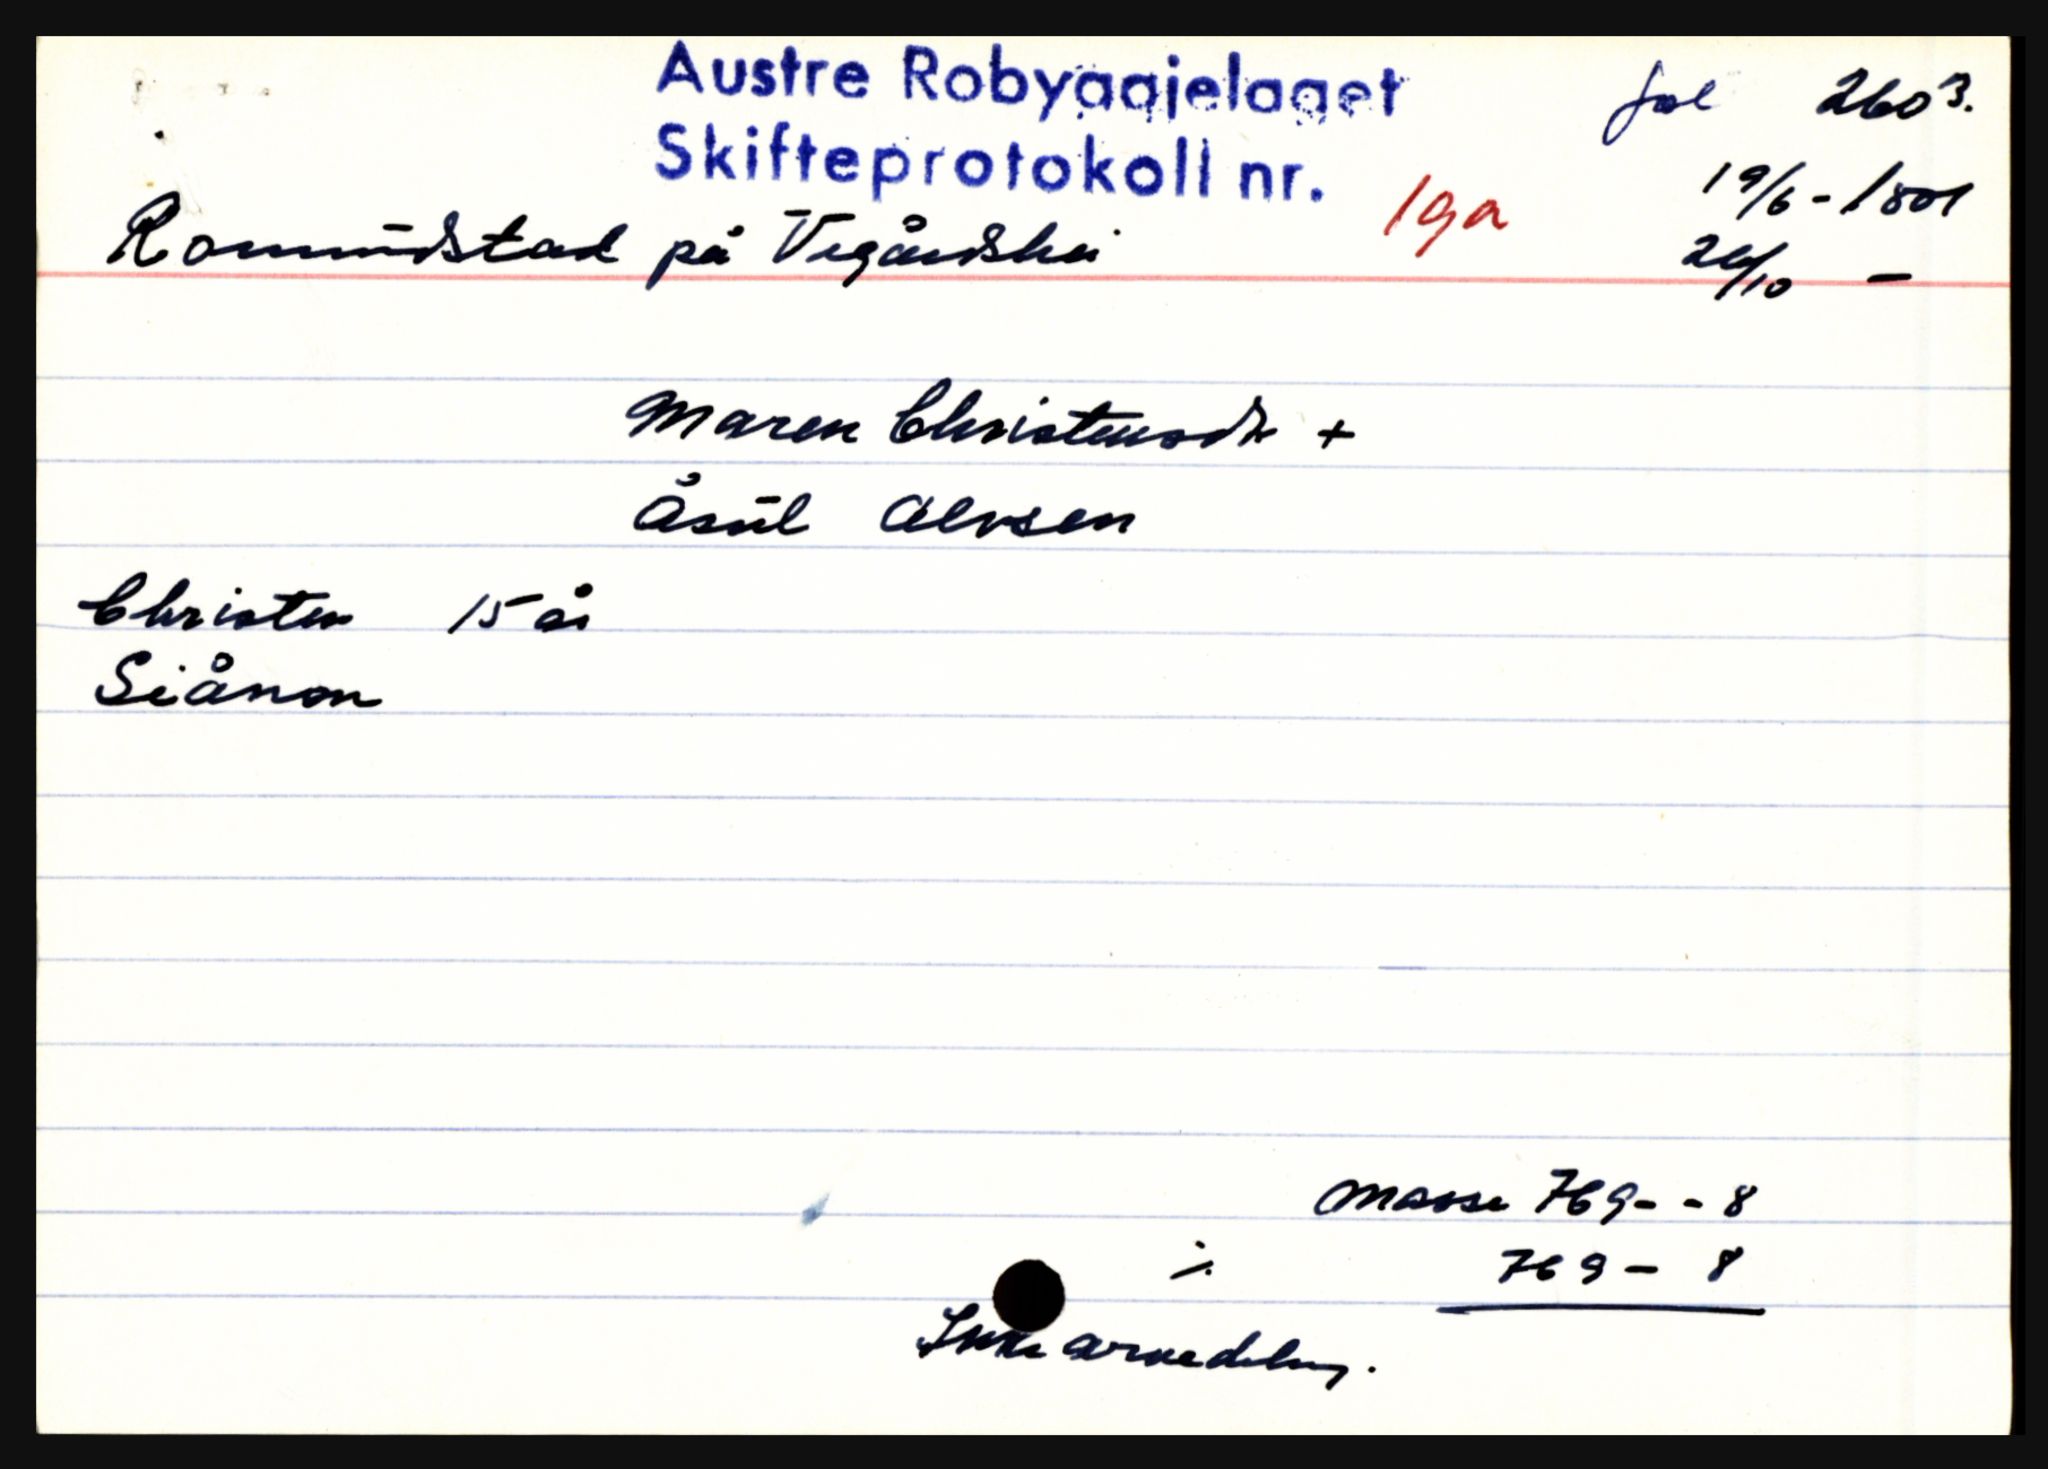 Austre Robyggjelaget fol 260 B.
Skifteprotokoll nr. 19a 19/6 - 1801
Romundstad på Vegårdshei 26/10 -
Maren Christensdt +
Åsul Alvsen
Christen 15 år
Siånon
Masse 769 - - 8
÷ 769 - 8
Ikke arvedeling.